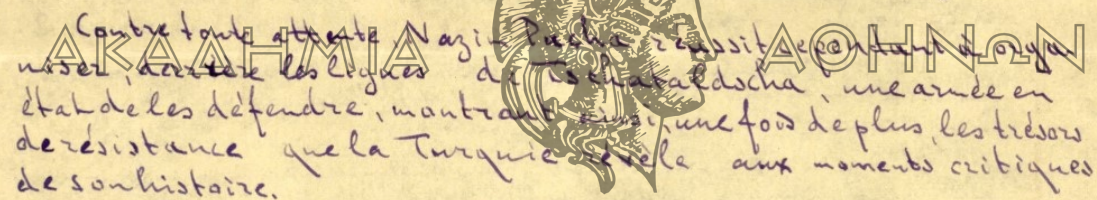 Contre toute attente Nazim Pacha réussit cependant à orga
niser, derrière les lignes de Tschataldscha, une armée en
état de les défendre, montrant ainsi, une fois de plus, les trésors
de résistance que la Turquie révèle aux moments critiques
de son histoire.
ΑΚΑΔΗΜΙΑ ΑΘΗΝΩΝ